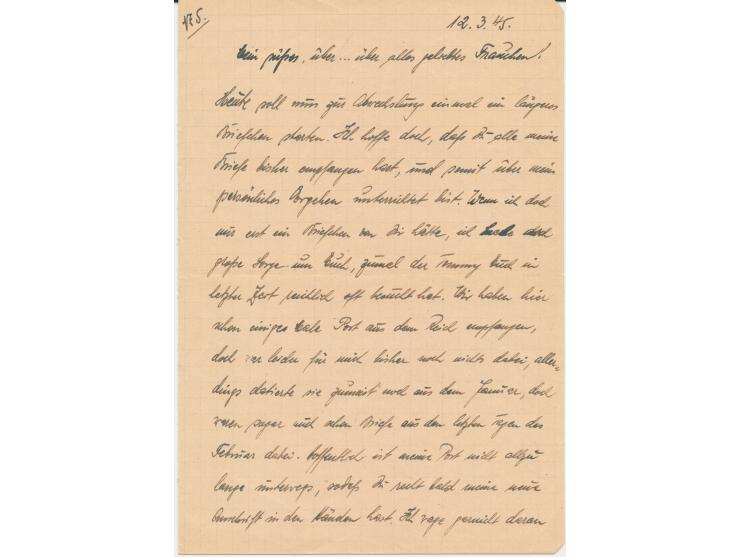 175.
12.3.45.
Mein süßes, über... über alles geliebtes Frauchen!
Heute soll nun zur Abwechslung einmal ein längeres
Briefchen starten. Ich hoffe doch, daß Du alle meine
Briefe bisher empfangen hast, und somit über mein
persönliches Ergehen unterrichtet bist. Wenn ich doch
nur erst ein Briefchen von Dir hätte, ich habe doch
große Sorge um Euch, zumal der Tommy Euch in
letzter Zeit reichlich oft beehrt hat. Wir haben hier
schon einiges Post aus dem Reich empfangen,
doch war leider für mich bisher noch nichts dabei, aller=
dings datierte sie zumeist noch aus dem Januar, doch
waren sogar auch schon Briefe aus den letzten Tagen des
Februar dabei. Hoffentlich ist meine Post nicht allzu
lange unterwegs, sodaß Du recht bald meine neue
Anschrift in den Händen hast. Ich daran